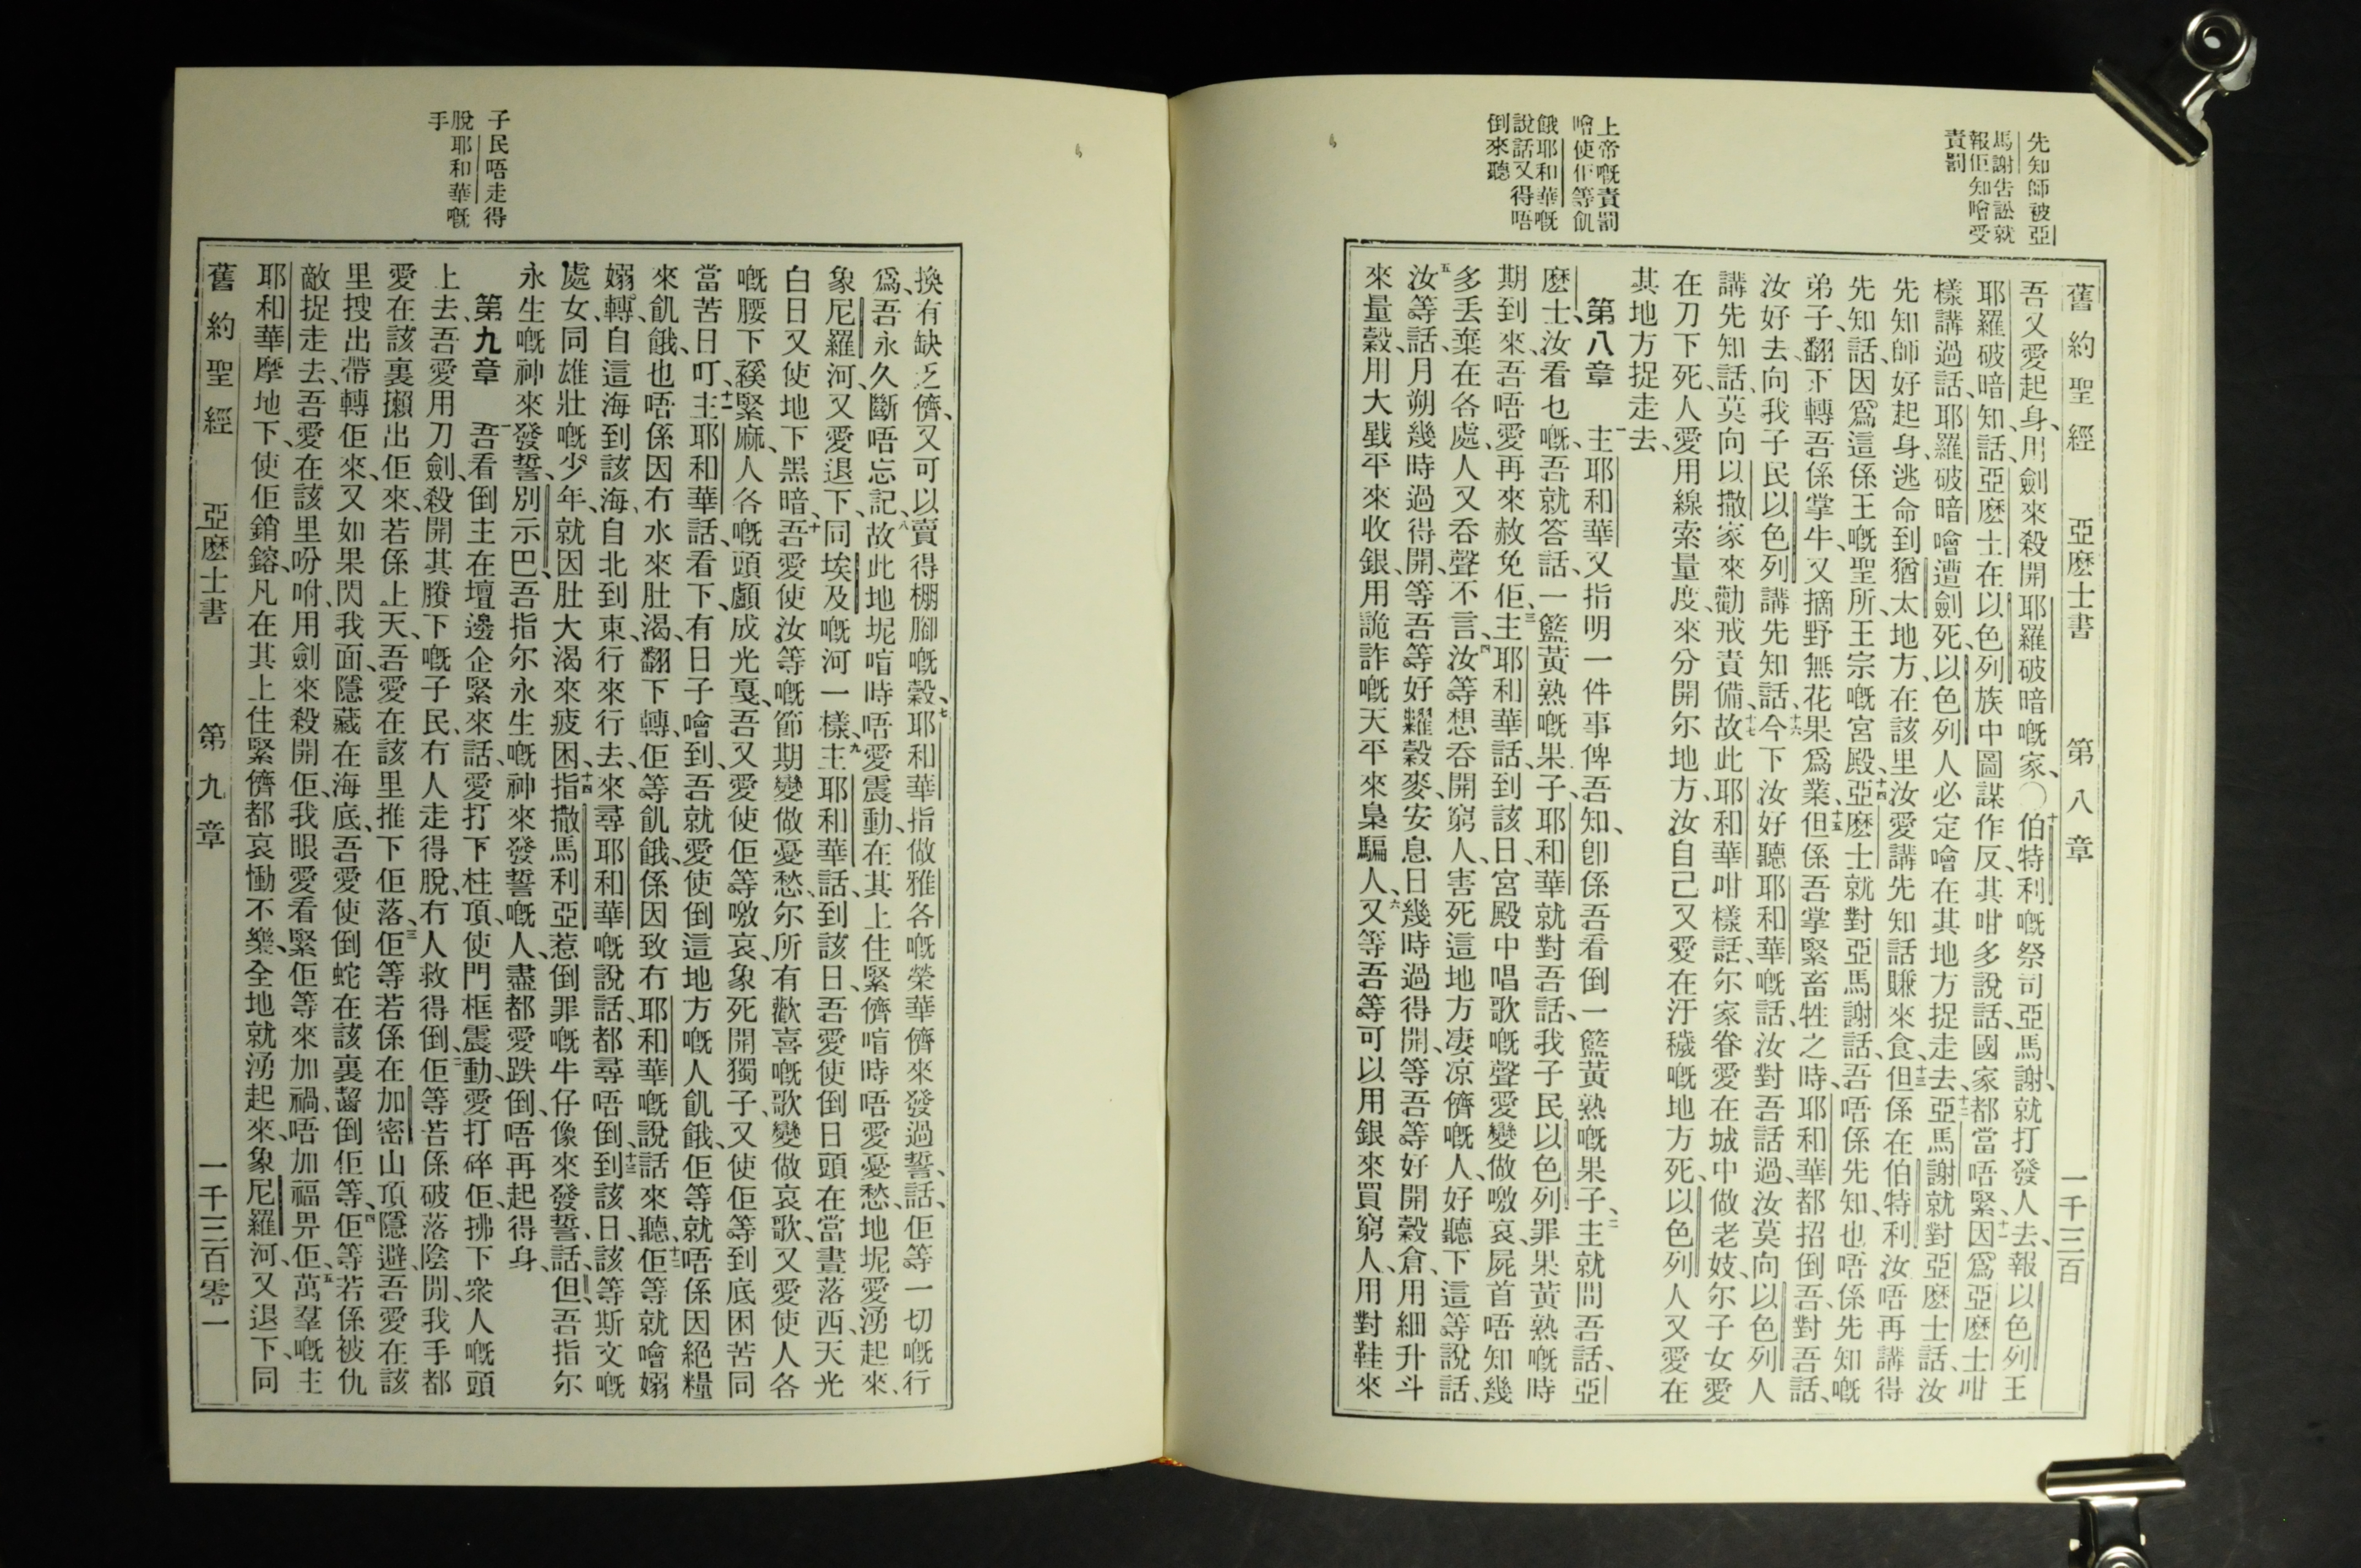 先知師被亞
馬謝告訟就
報佢知噲受
責罰
上帝嘅責罰
噲使佢等飢
餓耶和華嘅
說話又得唔
倒來聽
舊約聖經 亞麼士書 第八章 一千三百
吾又愛起身、用劍來殺開耶羅破暗嘅家、〇十伯特利嘅祭司亞馬謝、就打發人去、報以色列王
耶羅破暗知、話、亞麼士在以色列族中圖謀作反、其咁多說話、國家都當唔緊、十一因爲亞麼士咁
樣講過話、耶羅破暗噲遭劍死、以色列人必定噲在其地方捉走去、十二亞馬謝就對亞麼士話、汝
先知師好起身、逃命到猶太地方、在該里汝愛講先知話賺來食、十三但係在伯特利、汝唔再講得
先知話、因爲這係王嘅聖所、王宗嘅宮殿、十四亞麼士就對亞馬謝話、吾唔係先知、也唔係先知嘅
弟子、翻下轉吾係掌牛、又摘野無花果爲業、十五但係吾掌緊畜牲之時、耶和華都招倒吾、對吾話、
汝好去、向我子民以色列講先知話、十六今下汝好聽耶和華嘅話、汝對吾話過、汝莫向以色列人
講先知話、莫向以撒家來勸戒責備、十七故此耶和華咁樣話、尔家眷愛在城中做老妓、尔子女愛
在刀下死、人愛用線索量度、來分開尔地方、汝自己又愛在汙穢嘅地方死、以色列人又愛在
其地方捉走去、
第八章 一主耶和華又指明一件事俾吾知、卽係吾看倒一籃黃熟嘅果子、二主就問吾話、亞
麼士、汝看乜嘅、吾就答話、一籃黃熟嘅果子、耶和華就對吾話、我子民以色列罪果黃熟嘅時
期到來、吾唔愛再來赦免佢、三主耶和華話、到該日、宮殿中唱歌嘅聲愛變做噭哀、屍首唔知幾
多丢棄在各處、人又吞聲不言、四汝等想吞開窮人、害死這地方凄凉儕嘅人、好聽下這等說話、
五汝等話、月朔幾時過得開、等吾等好糶穀麥、安息日幾時過得開、等吾等好開穀倉、用細升斗
來量穀、用大戥平來收銀、用詭詐嘅天平來梟騙人、六又等吾等可以用銀來買窮人、用對鞋來
子民唔走得
脫耶和華嘅
手
換有缺乏儕、又可以賣得棚腳嘅穀、七耶和華指做雅各嘅榮華儕來發過誓、話、佢等一切嘅行
爲、吾永久斷唔忘記、八故此地坭喧時唔愛震動、在其上住緊儕喧時唔愛憂愁、地坭愛湧起來、
象尼羅河、又愛退下、同埃及嘅河一樣、九主耶和華話、到該日、吾愛使倒日頭在當晝落西、天光
白日又使地下黑暗、十吾愛使汝等嘅節期變做憂愁、尔所有歡喜嘅歌變做哀歌、又愛使人各
嘅腰下䌈緊麻、人各嘅頭顱成光戛、吾又愛使佢等噭哀、象死開獨子、又使佢等到底困苦同
當苦日叮、十一主耶和華話、看下、有日子噲到、吾就愛使倒這地方嘅人飢餓、佢等就唔係因絕糧
來飢餓、也唔係因冇水來肚渴、翻下轉、佢等飢餓、係因致冇耶和華嘅說話來聽、十二佢等就噲㜺
㜺轉、自這海到該海、自北到東、行來行去、來尋耶和華嘅說話、都尋唔倒、十三到該日、該等斯文嘅
處女、同雄壯嘅少年、就因肚大渴來疲困、十四指撒馬利亞惹倒罪嘅牛仔像來發誓、話、但、吾指尔
永生嘅神來發誓、別示巴、吾指尔永生嘅神來發誓嘅人、盡都愛跌倒、唔再起得身、
第九章 一吾看倒主在壇邊企緊來話、愛打下柱頂、使門框震動、愛打碎佢、拂下衆人嘅頭
上去、吾愛用刀劍、殺開其賸下嘅子民、冇人走得脫、冇人救得倒、二佢等若係破落陰間、我手都
愛在該裏攋出佢來、若係上天、吾愛在該里推下佢落、三佢等若係在加密山頂隱避、吾愛在該
里搜出、帶轉佢來、又如果閃我面、隱藏在海底、吾愛使倒蛇在該裏齧倒佢等、四佢等若係被仇
敵捉走去、吾愛在該里吩咐、用劍來殺開佢、我眼愛看緊佢等來加禍、唔加福畀佢、五萬羣嘅主
耶和華摩地下、使佢銷鎔、凡在其上住緊儕都哀慟不樂、全地就湧起來、象尼羅河、又退下、同
舊約聖經 亞麼士書 第九章 一千三百零一